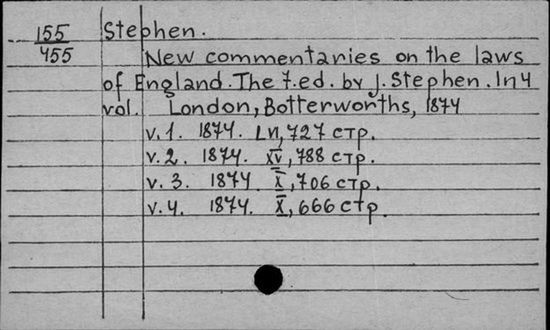 155 Stephen.
455 New commentaries on the laws
of England. The 7.ed. by J. Stephen. In 4
vol. London, Botterworths, 1874
v. 1. 1874. LVI, 727 стр.
v. 2. 1874. XV, 788 стр.
v. 3. 1874 X, 706 стр.
v. 4. 1874. X, 666 стр.